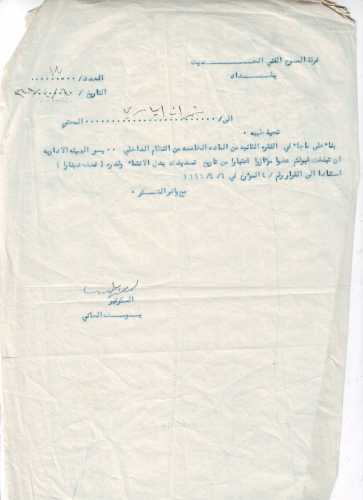 فرقة المسرح الفني الحديث
بغداد
العدد/ ١٨
التاريخ /
الى/ المحترم
تحية طيبة
بناء على ماجاء في الفقرة الثانية من المادة الخامسة من النظام الداخلي .. يسر الهيئة الادارية
ان قبولكم عضوا مؤازرا اعتبارا من تاريخ تسديدكم بدل الانتماء وقدره ( نصف دينار )
استنادا الى القرار رقم /٤ المؤرخ في
مع وافر الشكر .
السكرتير
يوسف العاني